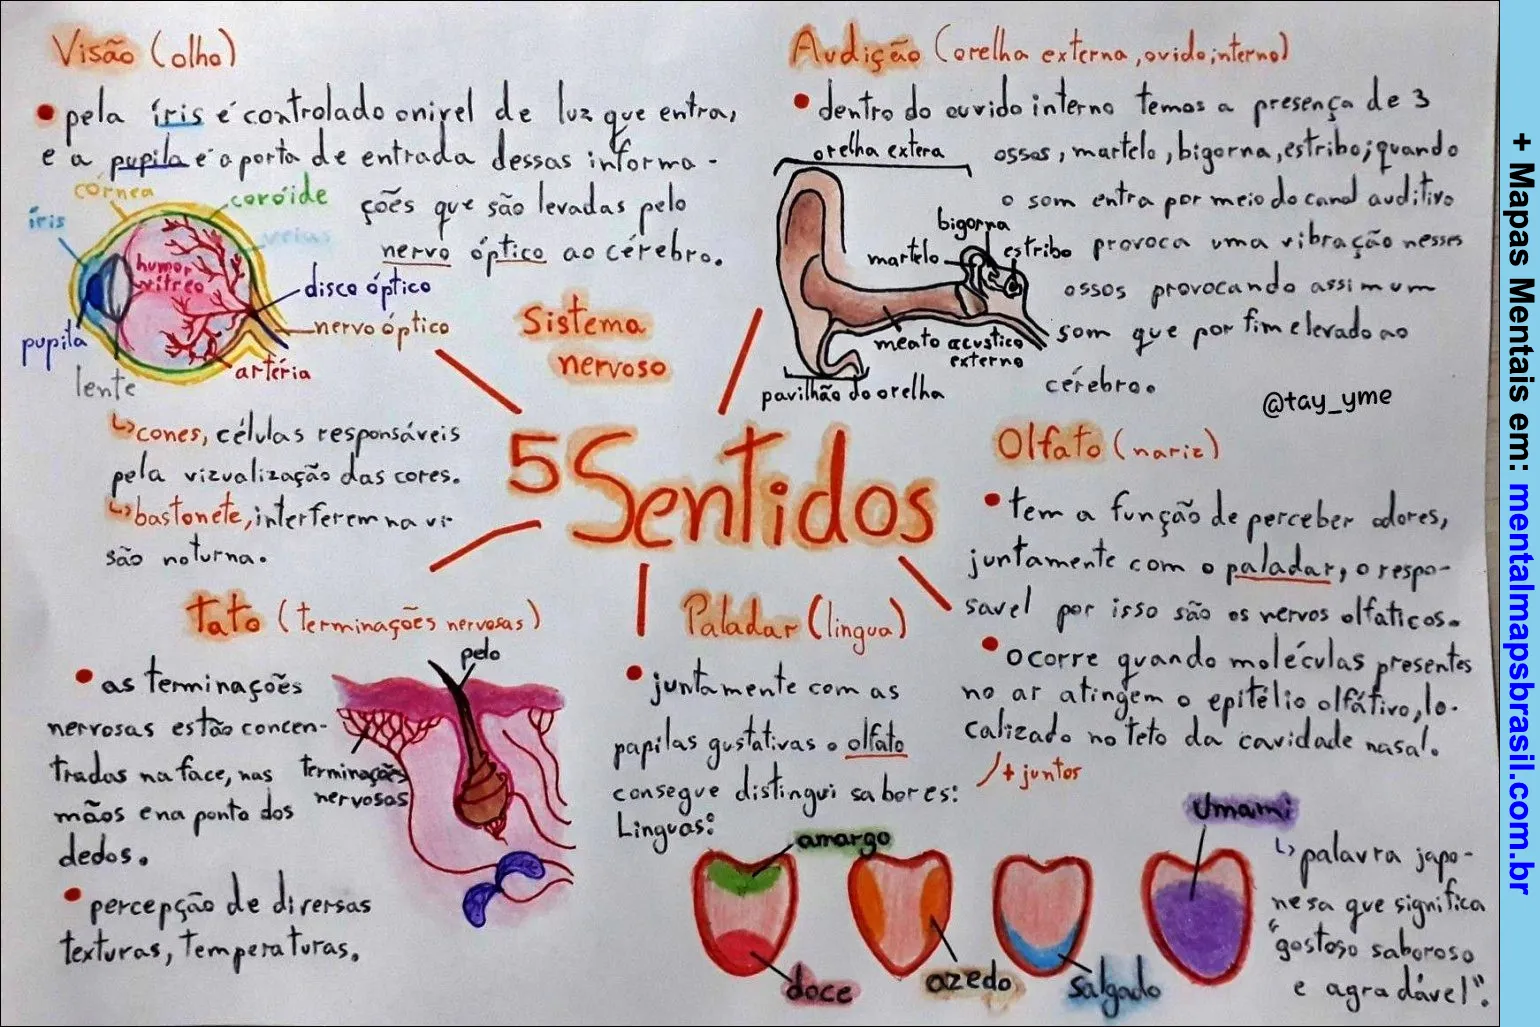 Visão (olho)
• pela íris é controlado o nivel de luz que entra,
e a pupila é a porta de entrada dessas informa -
ções que são levadas pelo
nervo óptico ao cérebro.
córnea
coróide
íris
veias
humor
vítreo
disco óptico
nervo óptico
pupila
artéria
lente
↳ cones, células responsáveis
pela vizualização das cores.
↳ bastonete, interferem na vi-
são noturna.
Audição (orelha externa, ovido, interno)
• dentro do ouvido interno temos a presença de 3
ossos, martelo, bigorna, estribo; quando
o som entra por meio do canal auditivo
provoca uma vibração nesses
ossos provocando assim um
som que por fim e levado ao
cérebro.
orelha extera
bigorna
martelo
estribo
meato acustico
externo
pavilhão do orelha
@tay_yme
Sistema
nervoso
5 Sentidos
Olfato (nariz)
• tem a função de perceber odores,
juntamente com o paladar, o respo-
savel por isso são os nervos olfaticos.
• ocorre quando moléculas presentes
no ar atingem o epitélio olfátivo, lo-
calizado no teto da cavidade nasal.
/+ juntos
Tato (terminações nervosas)
• as terminações
nervosas estão concen-
tradas na face, nas
mãos e na ponta dos
dedos.
• percepção de diversas
texturas, temperaturas.
pelo
terminações
nervosas
Paladar (lingua)
• juntamente com as
papilas gustativas o olfato
consegue distingui sabores:
Linguas:
amargo
doce
azedo
salgado
Umami
↳ palavra japo-
nesa que significa
“gostoso saboroso
e agradável”.
+ Mapas Mentais em: mentalmapsbrasil.com.br